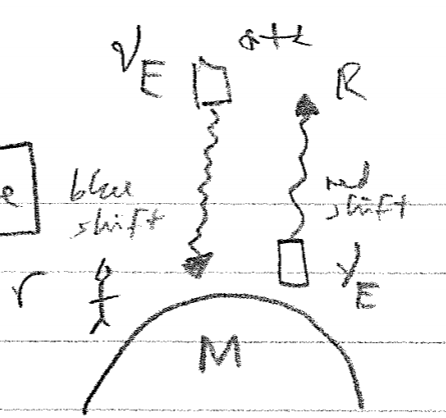 ν_E R
e blue shift red shift
r ν_E
M